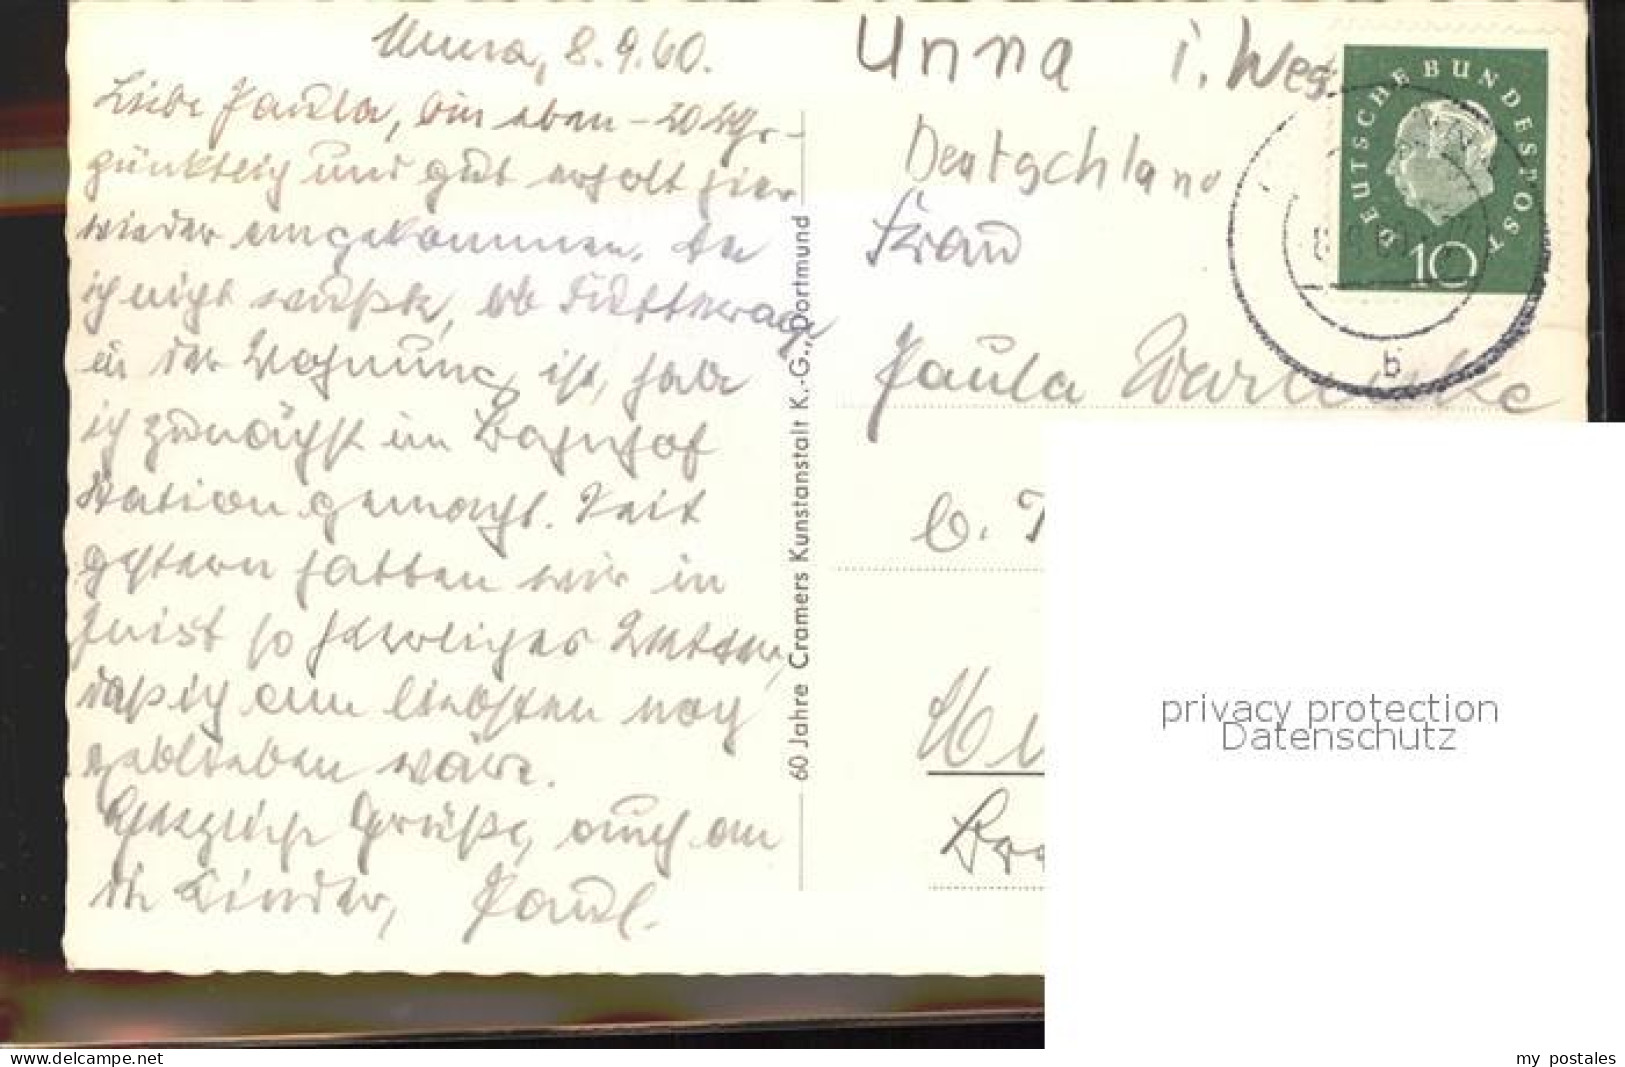 Unna, 8.9.60.
Liebe Paula, bin eben – 20 Uhr –
pünktlich und gut erholt hier
wieder angekommen. Da
ich nicht wußte, ob
in der Wohnung ist, habe
ich zunächst im Bahnhof
Station gemacht. Seit
gestern hatten wir in
Juist so herrliches Wetter,
daß ich am liebsten noch
geblieben wäre.
Herzliche Grüße, auch an
die Kinder, Paul.
60 Jahre Cramers Kunstanstalt K.-G., Dortmund
Unna i. Wes.
Deutschland
Frau
Paula
b. T
DEUTSCHE BUNDESPOST
10
b
privacy protection
Datenschutz
www.delcampe.net
my postales